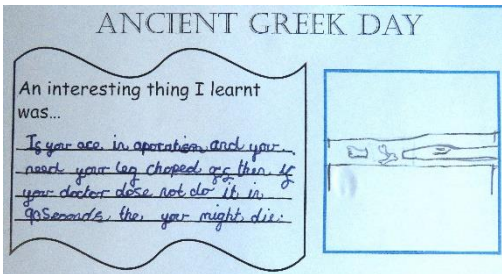 ANCIENT GREEK DAY
An interesting thing I learnt
was...
If your ace in aporation and your
need your leg choped off then if
your doctor dose not do it in
90Seconds the, your might die.